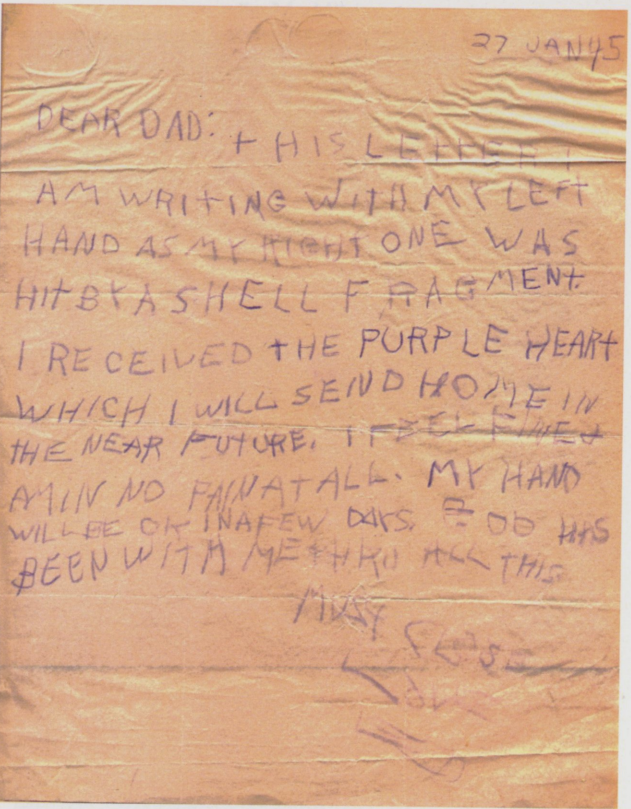 27 JAN 45
DEAR DAD:
THIS LETTER I
AM WRITING WITH MY LEFT
HAND AS MY RIGHT ONE WAS
HIT BY A SHELL FRAGMENT.
I RECEIVED THE PURPLE HEART
WHICH I WILL SEND HOME IN
THE NEAR FUTURE. I FEEL FINE &
AM IN NO PAIN AT ALL. MY HAND
WILL BE OK IN A FEW DAYS. GOD HAS
BEEN WITH ME THRU ALL THIS
Love